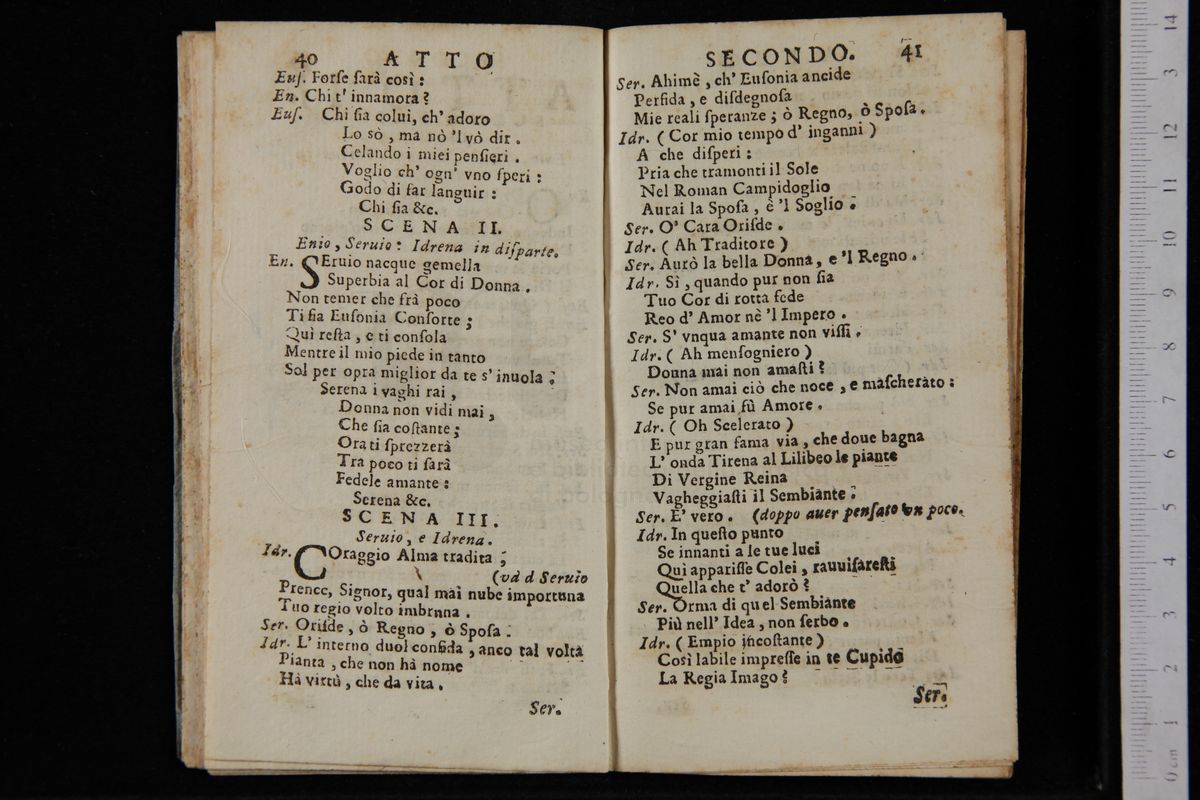 40 ATTO
Euſ. Forſe ſarà così :
En. Chi t' innamora ?
Euſ. Chi ſia colui, ch' adoro
Lo sò , ma nò 'l vò dir .
Celando i miei penſieri .
Voglio ch' ogn' vno ſperi :
Godo di far languir :
Chi ſia &c.
SCENA II.
Enio , Seruio : Idrena in diſparte.
En. SEruio nacque gemella
Superbia al Cor di Donna .
Non temer che frà poco
Ti ſia Euſonia Conſorte ;
Quì reſta , e ti conſola
Mentre il mio piede in tanto
Sol per opra miglior da te s' inuola ;
Serena i vaghi rai ,
Donna non vidi mai ,
Che ſia coſtante ;
Ora ti ſprezzerà
Tra poco ti ſarà
Fedele amante :
Serena &c.
SCENA III.
Seruio , e Idrena .
Idr. COraggio Alma tradita ;
(và à Seruio
Prence, Signor, qual mai nube importuna
Tuo regio volto imbruna .
Ser. Oriſde , ò Regno , ò Spoſa .
Idr. L' interno duol confida , anco tal voltà
Pianta , che non hà nome
Hà virtù , che da vita .
Ser.
SECONDO. 41
Ser. Ahimè , ch' Euſonia ancide
Perfida , e diſdegnoſa
Mie reali ſperanze ; ò Regno, ò Spoſa .
Idr. ( Cor mio tempo d' inganni )
A che diſperi :
Pria che tramonti il Sole
Nel Roman Campidoglio
Aurai la Spoſa , è 'l Soglio .
Ser. O' Cara Oriſde .
Idr. ( Ah Traditore )
Ser. Aurò la bella Donna , e 'l Regno .
Idr. Sì , quando pur non ſia
Tuo Cor di rotta fede
Reo d' Amor nè 'l Impero .
Ser. S' vnqua amante non viſſi .
Idr. ( Ah menſogniero )
Donna mai non amaſti ?
Ser. Non amai ciò che noce , e maſcherato :
Se pur amai fù Amore .
Idr. ( Oh Scelerato )
E pur gran fama via , che doue bagna
L' onda Tirena al Lilibeo le piante
Di Vergine Reina
Vagheggiaſti il Sembiante .
Ser. E' vero . (doppo auer penſato vn poco.
Idr. In queſto punto
Se innanti a le tue luci
Qui appariſſe Colei , rauuiſareſti
Quella che t' adorò ?
Ser. Orma di quel Sembiante
Più nell' Idea , non ſerbo .
Idr. ( Empio incoſtante )
Così labile impreſſe in te Cupido
La Regia Imago ?
Ser.
0 cm 1 2 3 4 5 6 7 8 9 10 11 12 3 14